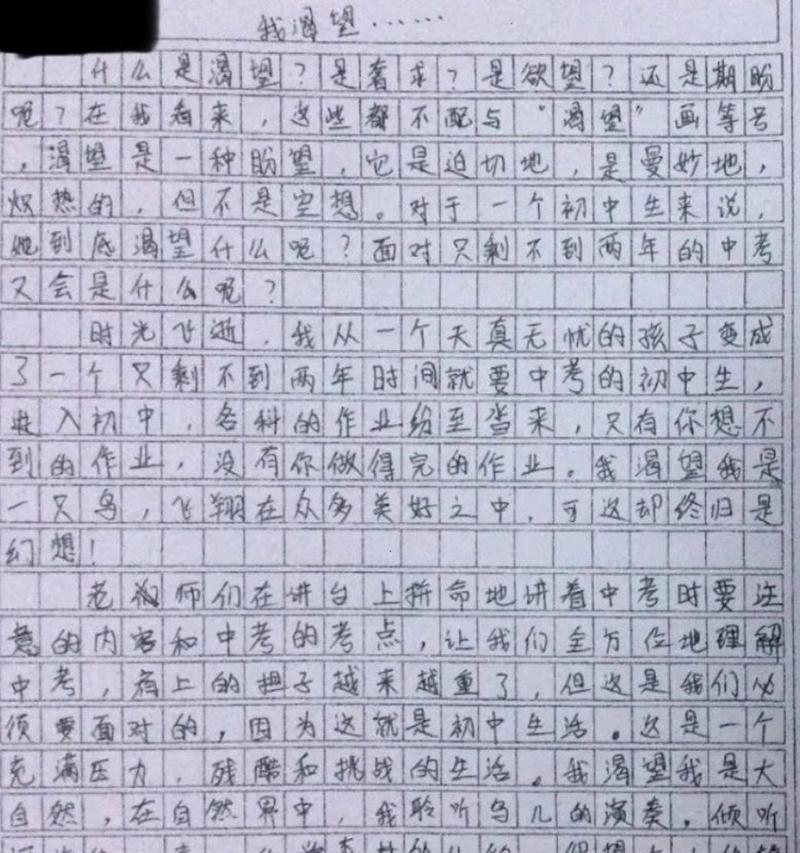 我渴望……
什么是渴望？是奢求？是欲望？还是期盼
呢？在我看来，这些都不配与“渴望”画等号
，渴望是一种盼望，它是迫切地，是曼妙地，
炽热的，但不是空想。对于一个初中生来说，
她到底渴望什么呢？面对只剩不到两年的中考
又会是什么呢？
时光飞逝，我从一个天真无忧的孩子变成
了一个只剩不到两年时间就要中考的初中生，
进入初中，各科的作业纷至沓来，只有你想不
到的作业，没有你做得完的作业。我渴望我是
一只鸟，飞翔在众多美好之中，可这却终归是
幻想！
老师们在讲台上拼命地讲着中考时要注
意的内容和中考的考点，让我们全方位地理解
中考，肩上的担子越来越重了，但这是我们必
须要面对的，因为这就是初中生活。这是一个
充满压力，残酷和挑战的生活。我渴望我是大
自然，在自然界中，我聆听鸟儿的演奏，倾听